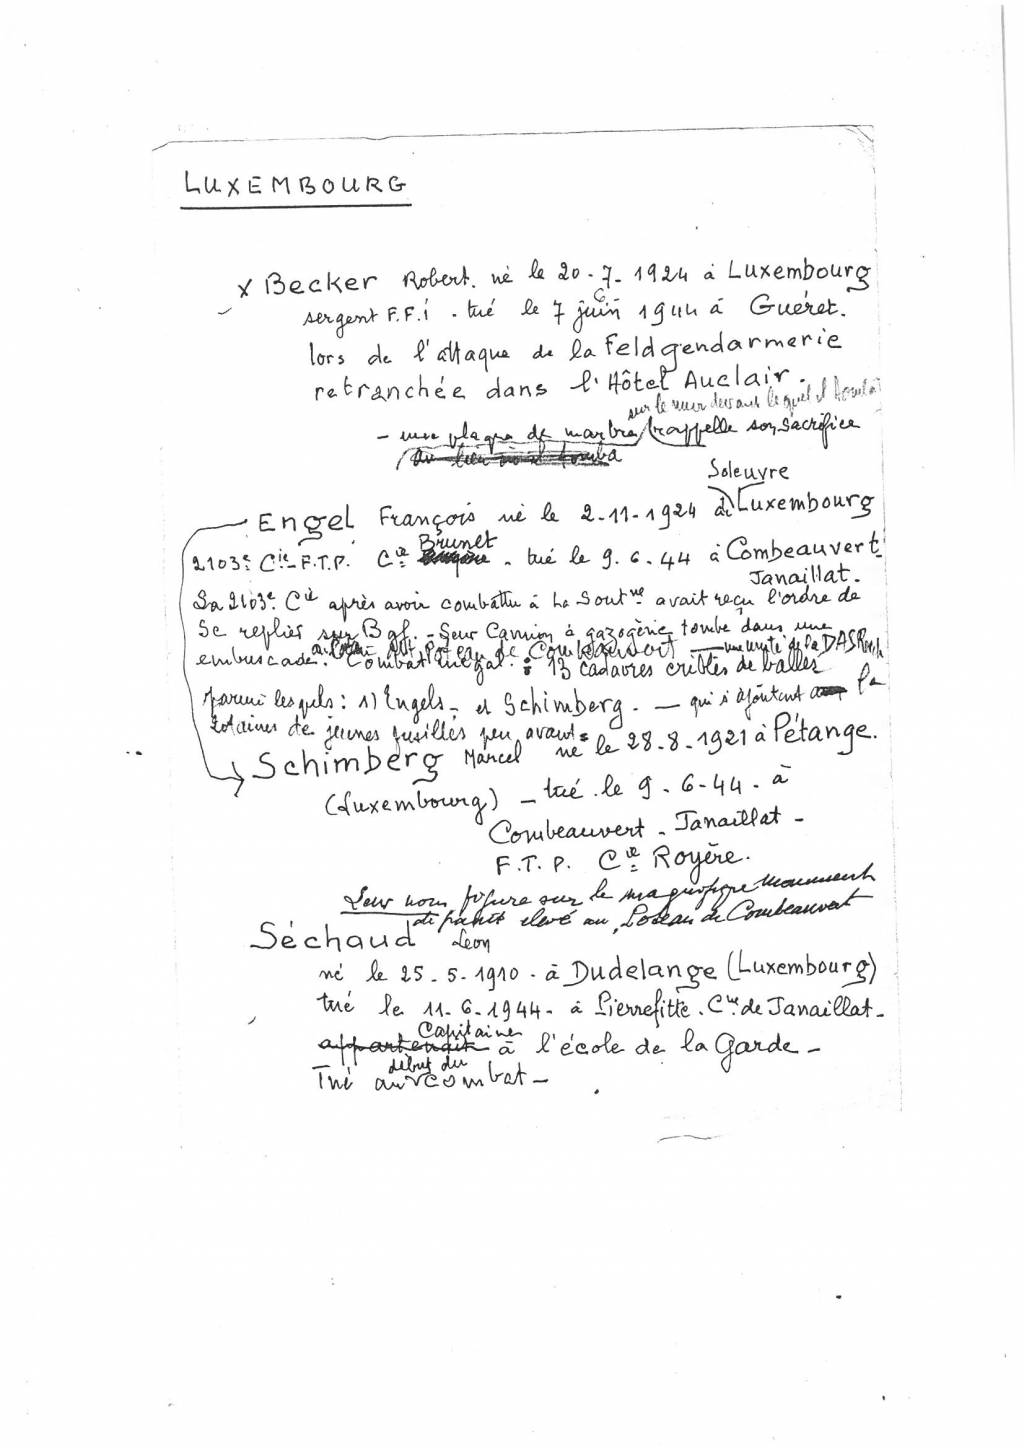 LUXEMBOURG
x Becker Robert. né le 20-7-1924 à Luxembourg
sergent F.F.I. tué le 7 juin 1944 à Guéret.
lors de l'attaque de la Feldgendarmerie
retranchée dans l'Hôtel Auclair.
sur le mur devant lequel il tomba
- une plaque de marbre rappelle son sacrifice
au lieu où il tomba
Soleuvre
Engel François né le 2-11-1924 à Luxembourg
Brunet
2103e Cie F.T.P. Cie - tué le 9.6.44 à Combeauvert
Janaillat.
La 2103e Cie après avoir combattu à La Soutne avait reçu l'ordre de
se replier sur Bgf. - Leur Camion à gazogène tombe dans une
au Poteau de Combeauvert - une unité de la DAS Reich
embuscade. Combat inégal : 13 cadavres criblés de balles
parmi lesquels : 1) Engels - et Schimberg. - qui s'ajoutent à la
de jeunes fusillés peu avant
Schimberg Marcel né le 28-8-1921 à Pétange.
(Luxembourg) - tué le 9-6-44 - à
Combeauvert - Janaillat -
F.T.P. Cie Royère.
Leur nom figure sur le magnifique monument
de granit élevé au Poteau de Combeauvert
Séchaud Leon
né le 25-5-1910 - à Dudelange (Luxembourg)
tué le 11-6-1944 - à Pierrefitte. Cne de Janaillat -
Capitaine
appartenait à l'école de la Garde -
début du
Tué au combat -